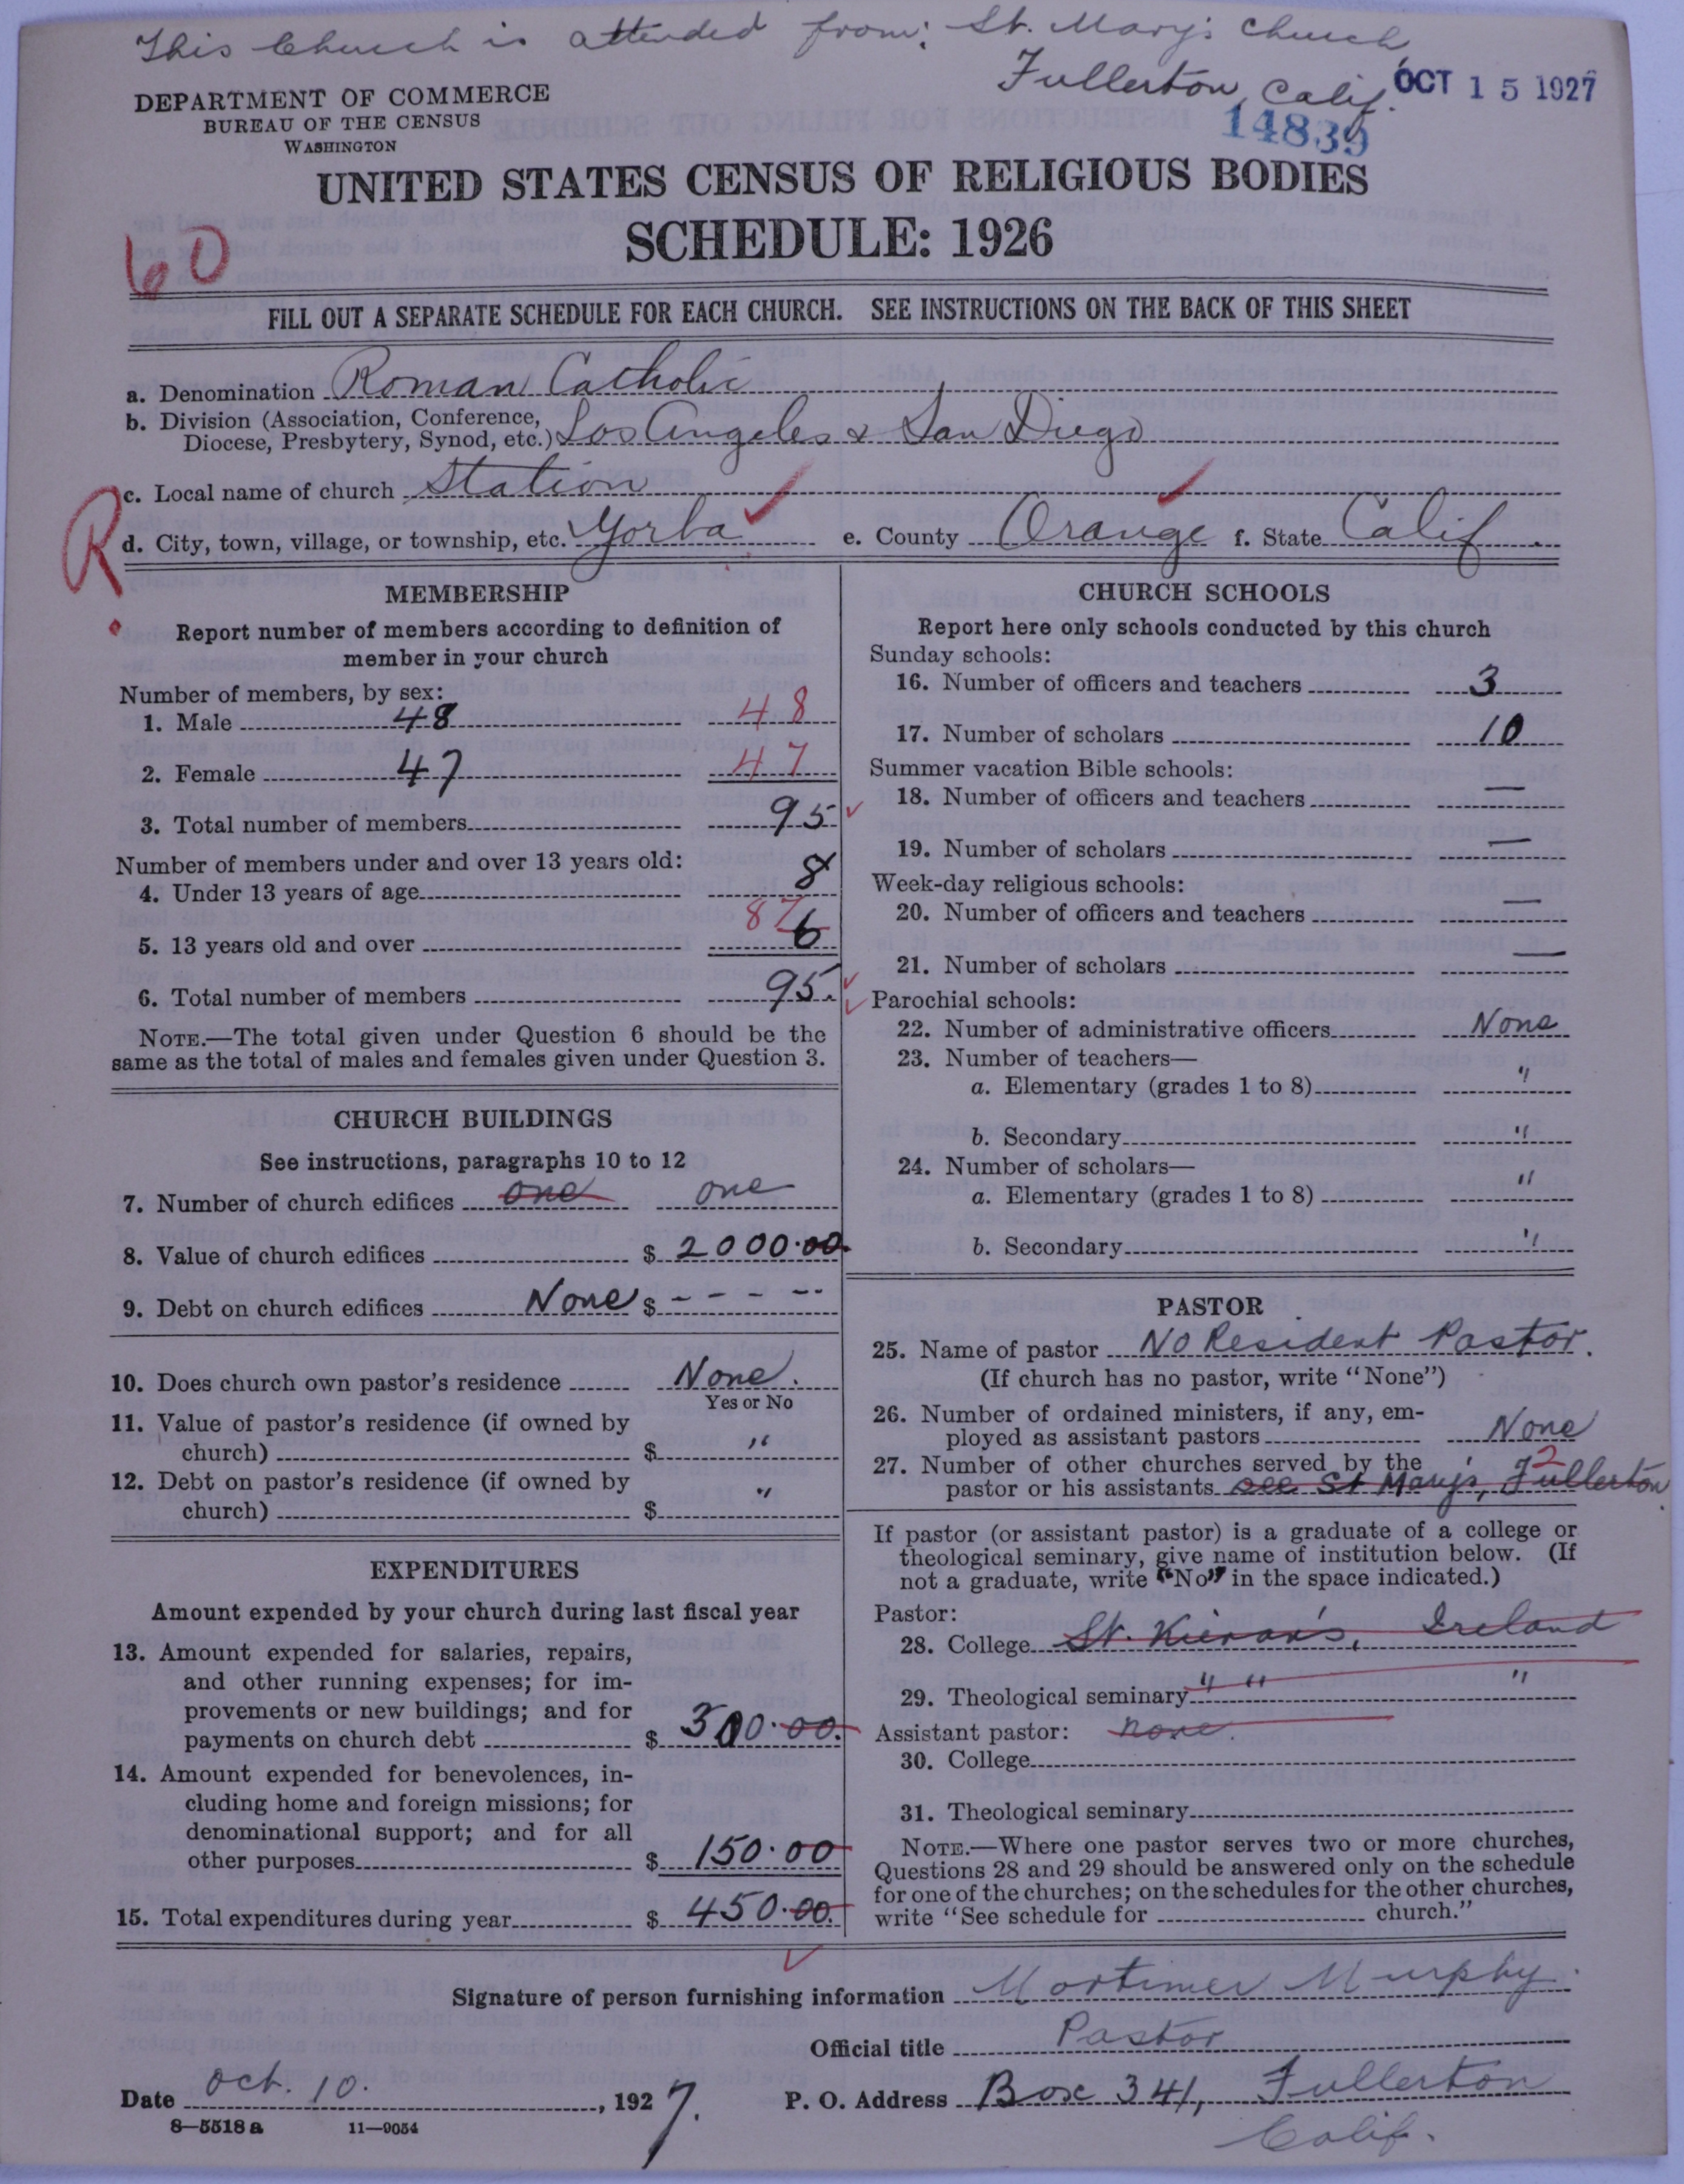 This Church is attended from: St. Mary's Church
Fullerton, Calif.
OCT 15 1927
14839
DEPARTMENT OF COMMERCE
BUREAU OF THE CENSUS
WASHINGTON
UNITED STATES CENSUS OF RELIGIOUS BODIES
SCHEDULE: 1926
60
FILL OUT A SEPARATE SCHEDULE FOR EACH CHURCH. SEE INSTRUCTIONS ON THE BACK OF THIS SHEET
a. Denomination Roman Catholic
b. Division (Association, Conference,
Diocese, Presbytery, Synod, etc.) Los Angeles & San Diego
c. Local name of church Station
R
d. City, town, village, or township, etc. Yorba e. County Orange f. State Calif.
MEMBERSHIP
Report number of members according to definition of
member in your church
Number of members, by sex:
1. Male 48 48
2. Female 47 47
3. Total number of members 95
Number of members under and over 13 years old:
4. Under 13 years of age 8
5. 13 years old and over 87
6. Total number of members 95.
NOTE.—The total given under Question 6 should be the
same as the total of males and females given under Question 3.
CHURCH BUILDINGS
See instructions, paragraphs 10 to 12
7. Number of church edifices one one
8. Value of church edifices $ 2000.00.
9. Debt on church edifices None $ - - - --
10. Does church own pastor's residence None.
Yes or No
11. Value of pastor's residence (if owned by
church) $ "
12. Debt on pastor's residence (if owned by
church) $ "
EXPENDITURES
Amount expended by your church during last fiscal year
13. Amount expended for salaries, repairs,
and other running expenses; for im-
provements or new buildings; and for
payments on church debt $ 300.00.
14. Amount expended for benevolences, in-
cluding home and foreign missions; for
denominational support; and for all
other purposes $ 150.00
15. Total expenditures during year $ 450.00.
CHURCH SCHOOLS
Report here only schools conducted by this church
Sunday schools:
16. Number of officers and teachers 3
17. Number of scholars 10
Summer vacation Bible schools:
18. Number of officers and teachers —
19. Number of scholars —
Week-day religious schools:
20. Number of officers and teachers —
21. Number of scholars —
Parochial schools:
22. Number of administrative officers None
23. Number of teachers—
a. Elementary (grades 1 to 8) "
b. Secondary "
24. Number of scholars—
a. Elementary (grades 1 to 8) "
b. Secondary "
PASTOR
25. Name of pastor No Resident Pastor.
(If church has no pastor, write "None")
26. Number of ordained ministers, if any, em-
ployed as assistant pastors None
27. Number of other churches served by the 2
pastor or his assistants see St Mary's, Fullerton
If pastor (or assistant pastor) is a graduate of a college or
theological seminary, give name of institution below. (If
not a graduate, write "No" in the space indicated.)
Pastor:
28. College St. Kieran's, Ireland
29. Theological seminary " " "
Assistant pastor: none
30. College
31. Theological seminary
NOTE.—Where one pastor serves two or more churches,
Questions 28 and 29 should be answered only on the schedule
for one of the churches; on the schedules for the other churches,
write "See schedule for church."
Signature of person furnishing information Mortimer Murphy.
Official title Pastor
Date Oct. 10. , 1927. P. O. Address Box 341, Fullerton
Calif.
8—5518a 11—9054